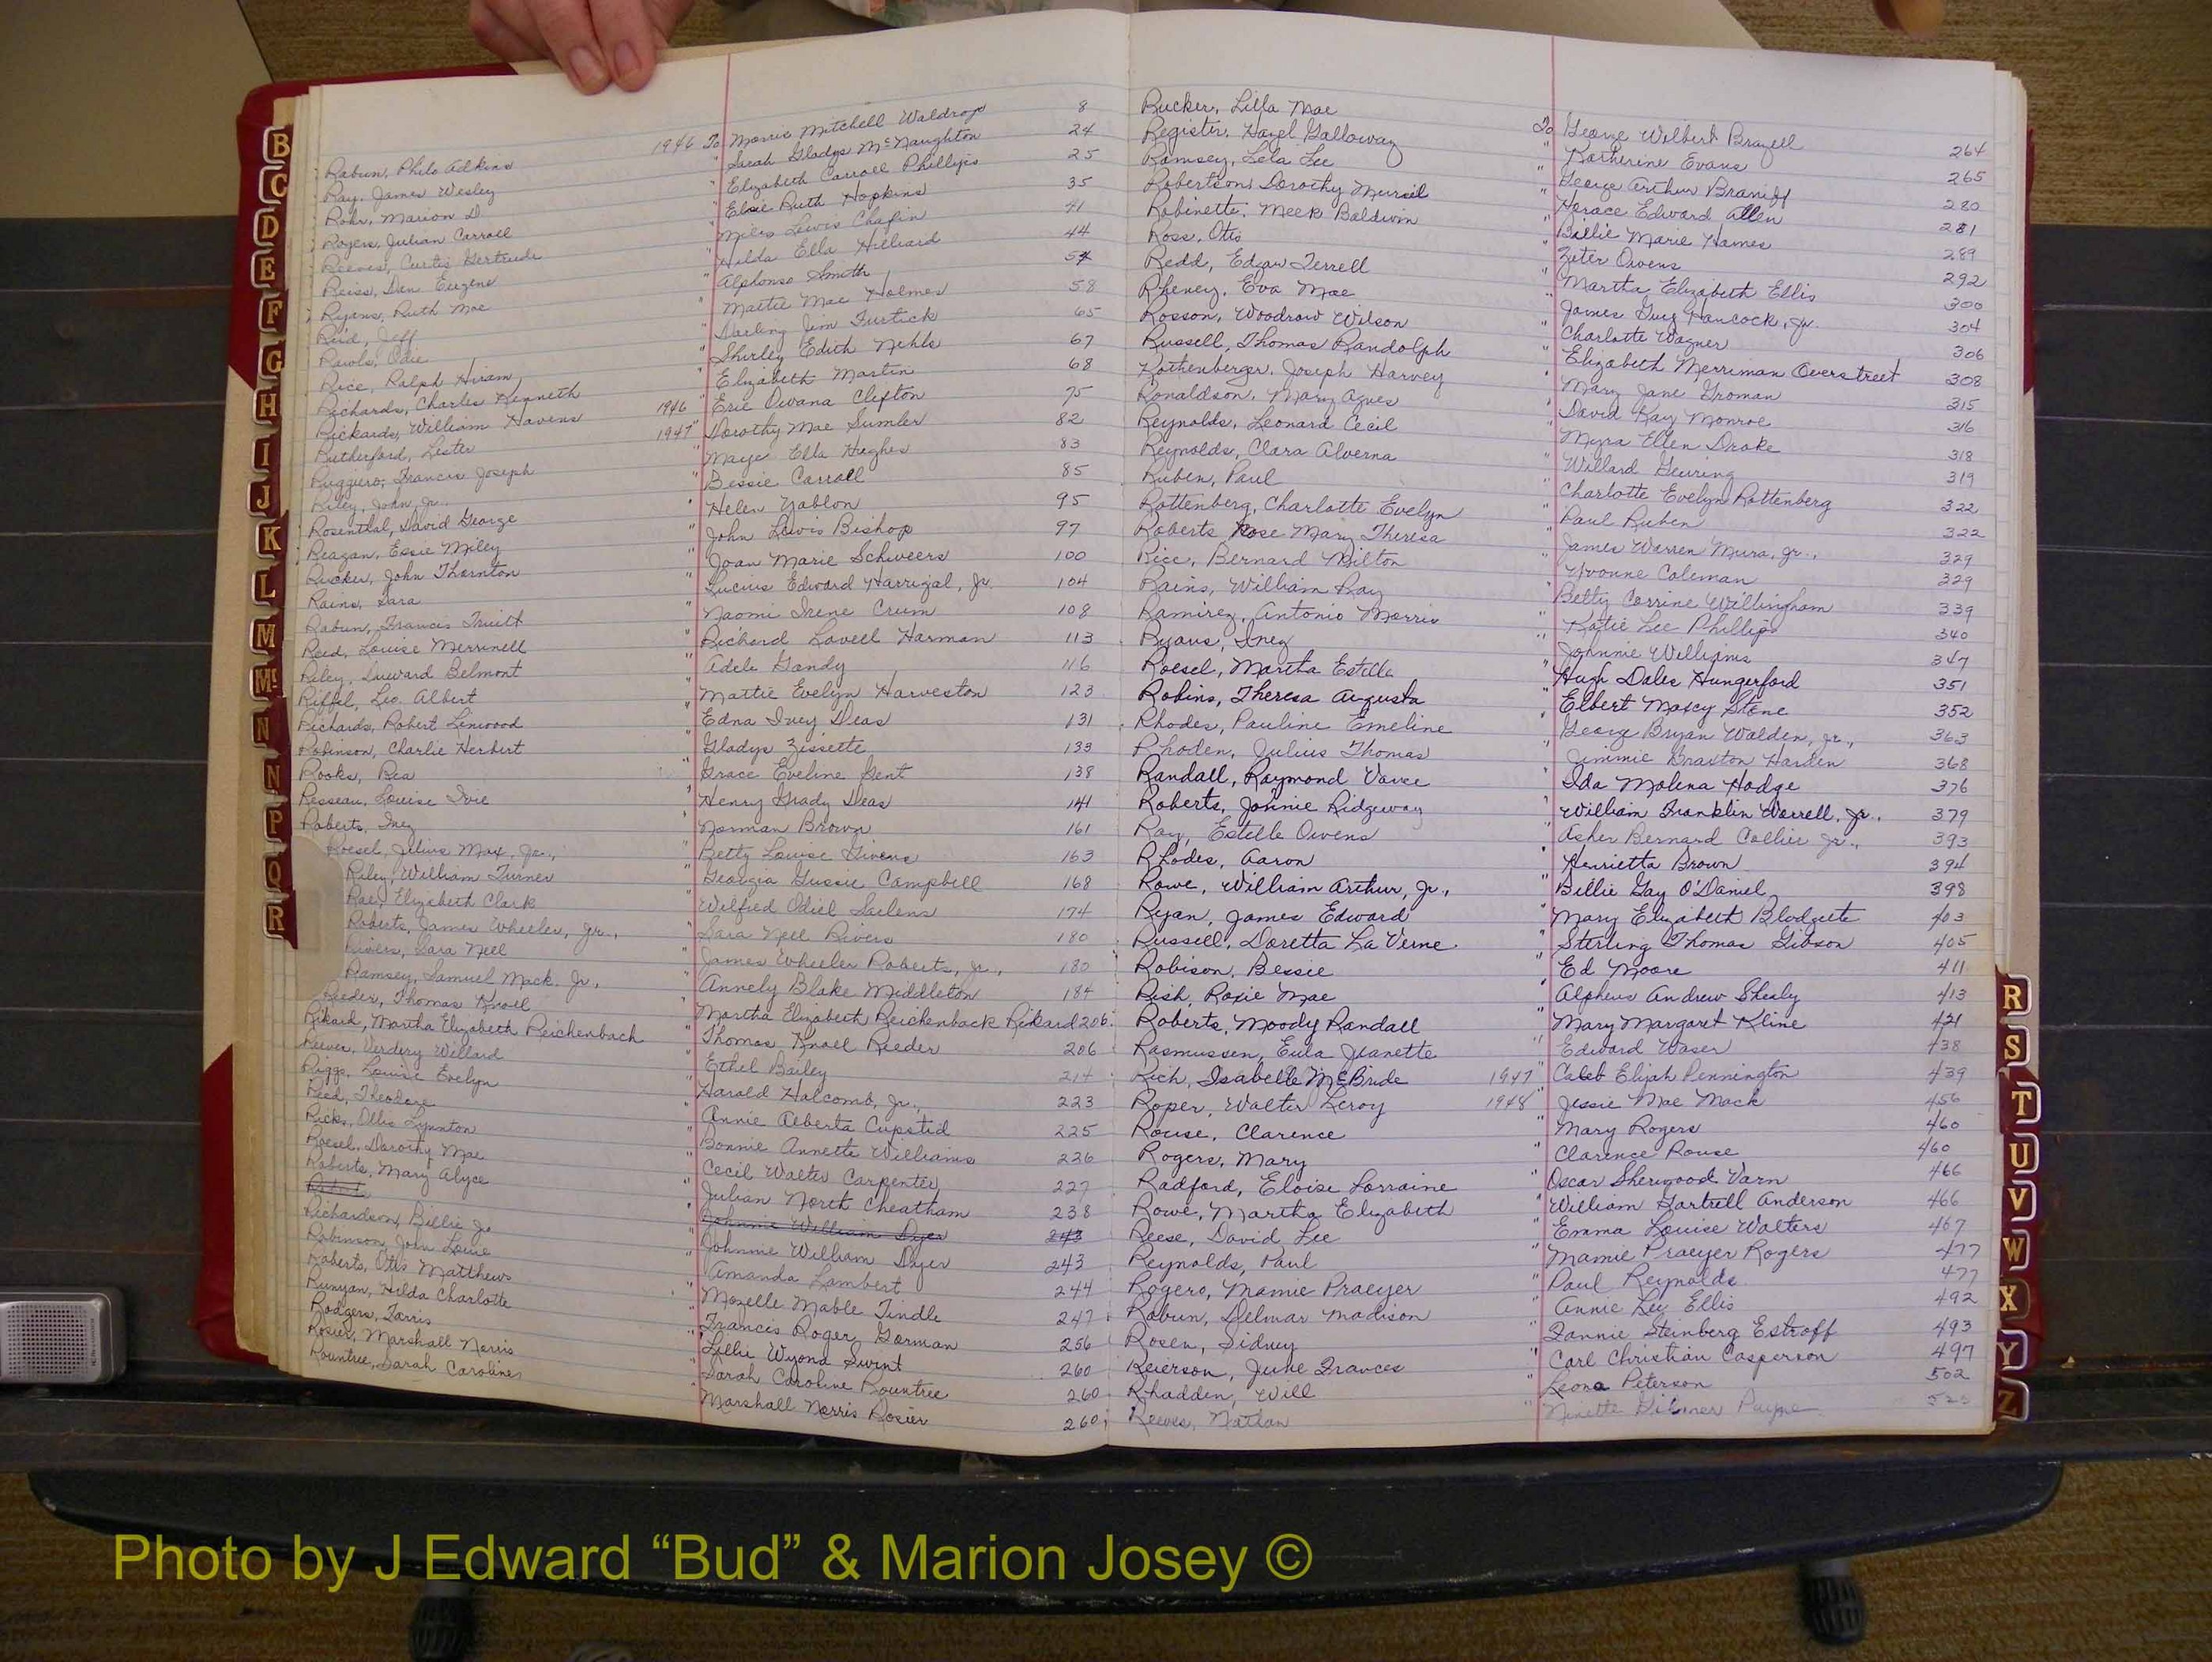 Rabun, Philo Adkins 1946 To Morris Mitchell Waldrop 8
Ray, James Wesley " Sarah Gladys McNaughton 24
Rohr, Marion D. " Elizabeth Carroll Phillips 25
Rogers, Julian Carroll " Elsie Ruth Hopkins 35
Reeves, Curtis Gertrude " Miles Lewis Chafin 41
Reiss, Dan Eugene " Hilda Ella Hilliard 44
Ryans, Ruth Mae " Alphonso Smith
Reid, Jeff " Mattie Mae Holmes 58
Rawls, Odie " Darling Jim Furtick 65
Rice, Ralph Hiram " Shirley Edith Nehls 67
Richards, Charles Kenneth " Elizabeth Martin 68
Rickards, William Havens 1946 " Erie Owana Clifton 75
Rutherford, Lester 1947 " Dorothy Mae Sumler 82
Ruggiero, Francis Joseph " Maye Ella Hughes 83
Riley, John, Jr. " Bessie Carroll 85
Rosenthal, David George " Helen Yablon 95
Reagan, Essie Miley " John Lewis Bishop 97
Rucker, John Thornton " Joan Marie Schweers 100
Rains, Sara " Lucius Edward Harrigal, Jr. 104
Rabun, Francis Truitt " Naomi Irene Crum 108
Reed, Louise Merrinell " Richard Lavell Harman 113
Riley, Durward Belmont " Adele Gandy 116
Riffel, Leo Albert " Mattie Evelyn Harveston 123
Richards, Robert Linwood " Edna Ivey Deas 131
Robinson, Charlie Herbert " Gladys Zissette 133
Rooks, Rea " Grace Eveline Gent 138
Resseau, Louise Ivie " Henry Grady Deas 141
Roberts, Inez " Norman Brown 161
Roesel, Julius Max, Jr., " Betty Louise Givens 163
Riley, William Turner " Georgia Gussie Campbell 168
Rae, Elizabeth Clark " Wilfied Odiel Saelens 174
Roberts, James Wheeler, Jr., " Sara Nell Rivers 180
Rivers, Sara Nell " James Wheeler Roberts, Jr., 180
Ramsey, Samuel Mack, Jr., " Annely Blake Middleton 184
Reeder, Thomas Knoll " Martha Elizabeth Reichenback Rikard 206
Rikard, Martha Elizabeth Reichenbach " Thomas Knoll Reeder 206
Reever, Verdery Willard " Ethel Bailey 214
Riggs, Louise Evelyn " Harold Halcomb, Jr., 223
Reed, Theodore " Annie Alberta Cupstid 225
Ricks, Ollis Lynnton " Bonnie Annette Williams 226
Roesel, Dorothy Mae " Cecil Walter Carpenter 227
Roberts, Mary Alyce " Julian North Cheatham 238
Johnnie William Dyer 243
Richardson, Billie Jo " Johnnie William Dyer 243
Robinson, John Louie " Amanda Lambert 244
Roberts, Otis Matthews " Mozelle Mable Tindle 247
Runyan, Hilda Charlotte " Francis Roger Gorman 256
Rodgers, Farris " Lillie Wyona Swint 260
Rosier, Marshall Norris " Sarah Caroline Rountree 260
Rountree, Sarah Caroline " Marshall Norris Rosier 260
Rucker, Lilla Mae To George Wilbert Brazell 264
Register, Hazel Galloway " Katherine Evans 265
Ramsey, Lela Lee " George Arthur Braniff 280
Robertson, Dorothy Mursil " Horace Edward Allen 281
Robinette, Meek Baldwin " Billie Marie Hames 289
Ross, Otis " Zeter Owens 292
Redd, Edgar Terrell " Martha Elizabeth Ellis 300
Rheney, Eva Mae " James Guy Hancock, Jr. 304
Rosson, Woodrow Wilson " Charlotte Wagner 306
Russell, Thomas Randolph " Elizabeth Merriman Overstreet 308
Rothenberger, Joseph Harvey " Mary Jane Groman 315
Ronaldson, Mary Agnes " David Ray Monroe 316
Reynolds, Leonard Cecil " Myra Ellen Drake 318
Reynolds, Clara Alverna " Willard Geuring 319
Ruben, Paul " Charlotte Evelyn Rottenberg 322
Rottenberg, Charlotte Evelyn " Paul Ruben 322
Roberts, Rose Mary Theresa " James Warren Mura, Jr., 329
Rice, Bernard Milton " Yvonne Coleman 329
Rains, William Ray " Betty Corrine Willingham 339
Ramirez, Antonio Morris " Katie Lee Phillips 340
Ryans, Inez " Johnnie Williams 347
Roesel, Martha Estelle " Hugh Dales Hungerford 351
Robins, Theresa Augusta " Elbert Maxcy Stone 352
Rhodes, Pauline Emeline " George Bryan Walden, Jr., 363
Rhoden, Julius Thomas " Jimmie Braxton Harden 368
Randall, Raymond Vance " Ida Molena Hodge 376
Roberts, Johnnie Ridgeway " William Franklin Worrell, Jr., 379
Ray, Estelle Owens " Asher Bernard Collier Jr., 393
Rhodes, Aaron " Henrietta Brown 394
Rowe, William Arthur, Jr., " Billie Gay O'Daniel 398
Ryan, James Edward " Mary Elizabeth Blodgette 403
Russell, Doretta La Verne " Sterling Thomas Gibson 405
Robison, Bessie " Ed Moore 411
Rish, Roxie Mae " Alpheus Andrew Shealy 413
Roberts, Moody Randall " Mary Margaret Kline 421
Rasmussen, Eula Jeanette " Edward Waser 438
Rich, Isabelle McBride 1947 " Caleb Elijah Pennington 439
Roper, Walter Leroy 1948 " Jessie Mae Mack 456
Rouse, Clarence " Mary Rogers 460
Rogers, Mary " Clarence Rouse 460
Radford, Eloise Lorraine " Oscar Sherwood Varn 466
Rowe, Martha Elizabeth " William Gartrell Anderson 466
Reese, David Lee " Emma Louise Walters 467
Reynolds, Paul " Mamie Praeyer Rogers 477
Rogers, Mamie Praeyer " Paul Reynolds 477
Rabun, Delmar Madison " Annie Lee Ellis 492
Rosen, Sidney " Fannie Steinberg Estroff 493
Reierson, June Frances " Carl Christian Casperson 497
Rhadden, Will " Leona Peterson 502
Reeves, Nathan " Ninette Gilmer Payne
B
C
D
E
F
G
H
I
J
K
L
M
Mc
N
N
P
Q
R
R
S
T
U
V
W
X
Y
Z
Photo by J Edward “Bud” & Marion Josey ©